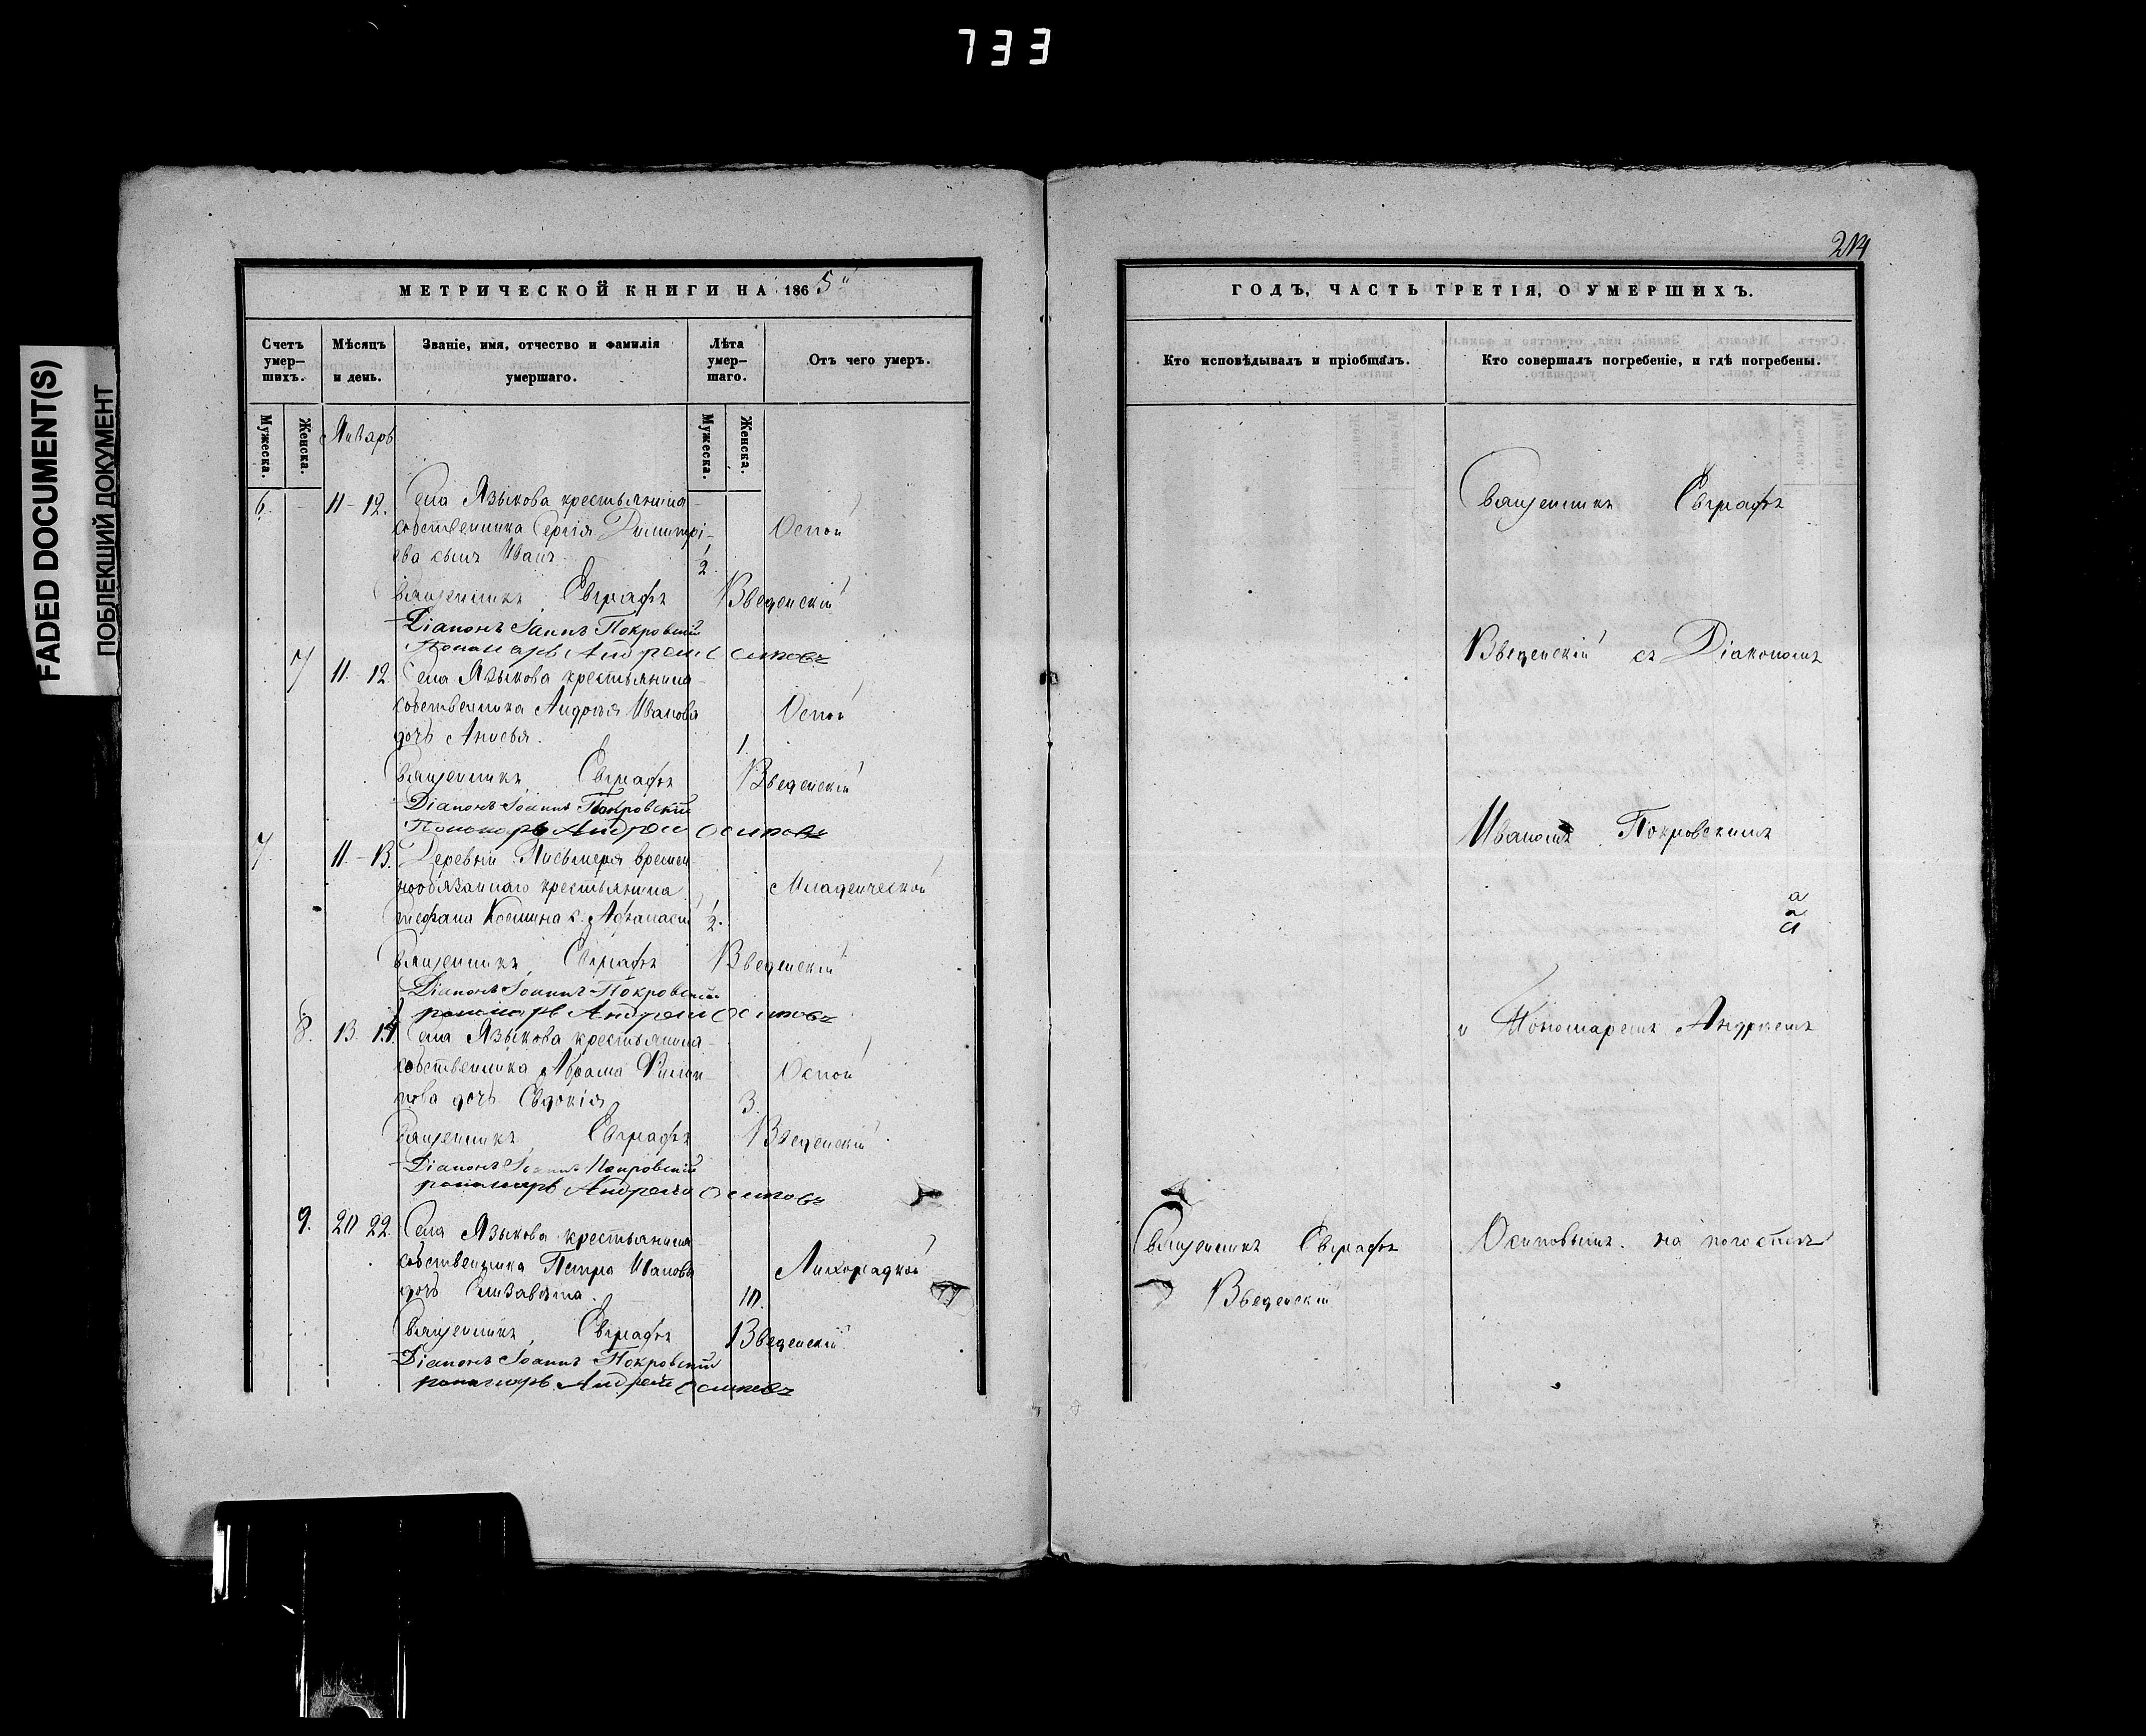 733
FADED DOCUMENT(S)
ПОБЛЕКШИЙ ДОКУМЕНТ
МЕТРИЧЕСКОЙ КНИГИ НА 1865й
Счетъ умер—шихъ.
Мѣсяцъ и день.
Званіе, имя, отчество и фамилія умершаго.
Лѣта умер—шаго.
Отъ чего умеръ.
Мужеска.
Женска.
Январь
Мужеска.
Женска.
6. - 11 - 12. Села Языкова крестьянина
собственника Сергія Димитрі- Оспой
ева сынъ Иванъ. 1/2.
Священникъ Евграфъ Введенскій
Діаконъ Іоаннъ Покровскій
Пономарь Андрей Осиповъ
7 11. 12. Села Языкова крестьянина
собственника Андрея Иванова Оспой
дочь Анисья. 1.
Священникъ Евграфъ Введенскій
Діаконъ Іоаннъ Покровскій
Пономарь Андрей Осиповъ
7. 11. - 13. Деревни Письмеря времен
нообязаннаго крестьянина Младенческой
Стефана Косьмина с. Афанасій 1/2.
Священникъ Евграфъ Введенскій
Діаконъ Іоаннъ Покровскій
пономарь Андрей Осиповъ
8. 13. 14. Села Языкова крестьянина
собственника Абрама Филип- Оспой
пова дочь Евдокія 3.
Священникъ Евграфъ Введенскій
Діаконъ Іоаннъ Покровскій
пономарь Андрей Осиповъ
9. 20 22. Села Языкова крестьянина
собственника Петра Иванова Лихорадкой
дочь Елизавета. 10.
Священникъ Евграфъ Введенскій
Діаконъ Іоаннъ Покровскій
пономарь Андрей Осиповъ
214
ГОДЪ, ЧАСТЬ ТРЕТІЯ, О УМЕРШИХЪ.
Кто исповѣдывалъ и пріобщалъ.
Кто совершалъ погребеніе, и гдѣ погребены.
Священникъ Евграфъ
Введенскій съ Діакономъ
Иваномъ Покровскимъ
и Пономаремъ Андреемъ
Священникъ Евграфъ
Введенскій
Осиповымъ. на погостѣ